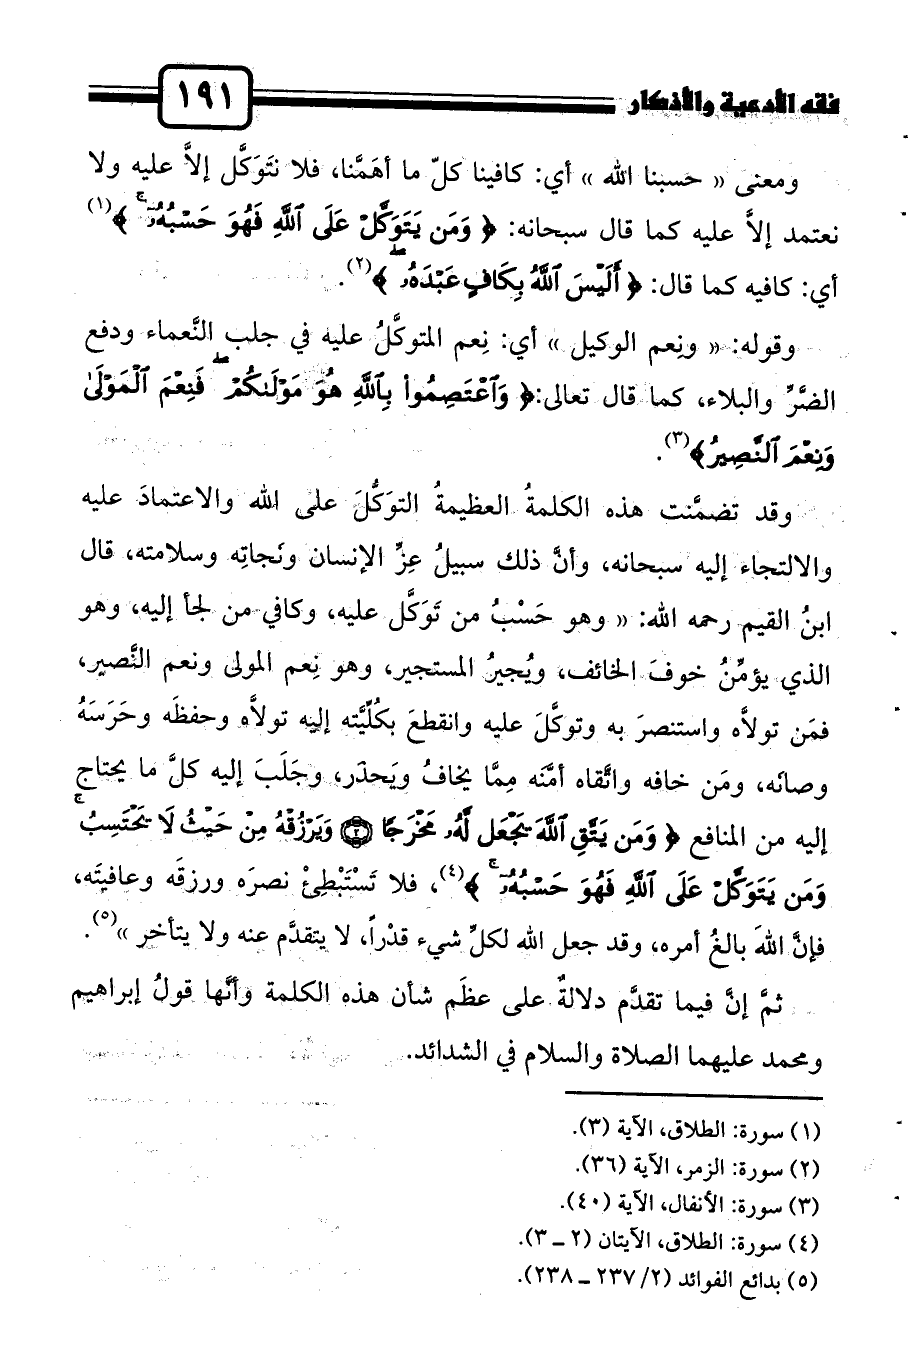 فقه الأدعية والأذكار ١٩١
ومعنى « حسبنا الله » أي: كافينا كلّ ما أهَمَّنا، فلا نتَوَكَّل إلاَّ عليه ولا
نعتمد إلاَّ عليه كما قال سبحانه: ﴿ وَمَن يَتَوَكَّلْ عَلَى ٱللَّهِ فَهُوَ حَسْبُهُۥٓ ۚ ﴾(١)
أي: كافيه كما قال: ﴿ أَلَيْسَ ٱللَّهُ بِكَافٍ عَبْدَهُۥ ۖ ﴾(٢).
وقوله: « ونِعم الوكيل » أي: نِعم المتوكَّلُ عليه في جلب النَّعماء ودفع
الضَّرِّ والبلاء، كما قال تعالى:﴿ وَٱعْتَصِمُوا۟ بِٱللَّهِ هُوَ مَوْلَىٰكُمْ ۖ فَنِعْمَ ٱلْمَوْلَىٰ
وَنِعْمَ ٱلنَّصِيرُ﴾(٣).
وقد تضمَّنت هذه الكلمةُ العظيمةُ التوَكُّلَ على الله والاعتمادَ عليه
والالتجاء إليه سبحانه، وأنَّ ذلك سبيلُ عِزِّ الإنسان ونَجاتِه وسلامته، قال
ابنُ القيم رحمه الله: « وهو حَسْبُ من تَوَكَّل عليه، وكافي من لجأ إليه، وهو
الذي يؤمِّنُ خوفَ الخائف، ويُجيرُ المستجير، وهو نِعم المولى ونعم النَّصير،
فمَن تولاَّه واستنصرَ به وتوكَّلَ عليه وانقطعَ بكُلِّيَّته إليه تولاَّه وحفظَه وحَرَسَهُ
وصانَه، ومَن خافه واتَّقاه أمَّنَه مِمَّا يخافُ ويَحذَر، وجَلَبَ إليه كلَّ ما يحتاج
إليه من المنافع ﴿ وَمَن يَتَّقِ ٱللَّهَ يَجْعَل لَّهُۥ مَخْرَجًا ۝٢ وَيَرْزُقْهُ مِنْ حَيْثُ لَا يَحْتَسِبُ ۚ
وَمَن يَتَوَكَّلْ عَلَى ٱللَّهِ فَهُوَ حَسْبُهُۥٓ ۚ ﴾(٤)، فلا تَسْتَبْطِئْ نصرَه ورزقَه وعافيتَه،
فإنَّ اللهَ بالغُ أمره، وقد جعل الله لكلِّ شيء قدْراً، لا يتقدَّم عنه ولا يتأخر »(٥).
ثمَّ إنَّ فيما تقدَّم دلالةٌ على عظَم شأن هذه الكلمة وأنَّها قولُ إبراهيم
ومحمد عليهما الصلاة والسلام في الشدائد.
(١) سورة: الطلاق، الآية (٣).
(٢) سورة: الزمر، الآية (٣٦).
(٣) سورة: الأنفال، الآية (٤٠).
(٤) سورة: الطلاق، الآيتان (٢ ـ ٣).
(٥) بدائع الفوائد (٢/ ٢٣٧ ـ ٢٣٨).